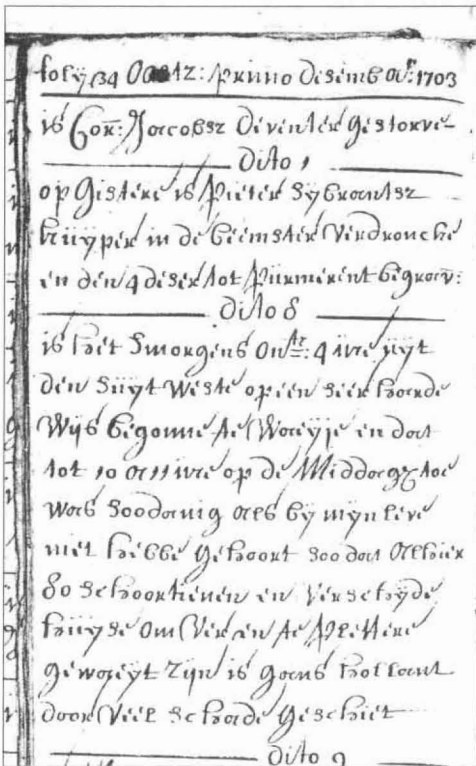 foly 34 Oostz: primo desemb aº. 1703
is Cor: Jacobsz deventer gestorve
dito 1
op gistere is Pieter Sybrantsz
kuyper in de beemster verdroncke
en den 4 deser tot purmerent begrav:
dito 8
is het smorgens ontr: 4 ure uyt
den Suyt Weste op een seer harde
Wys begonne te Waeyje en dat
tot 10 a 11 ure op de Middagh toe
was soodanig als by myn leve
niet hebbe gehoort soo dat alhier
80 schoortienen en verscheyde
huyse om ver en te plettere
gewaeyt zyn is gans hollant
door veel schade geschiet
dito 9